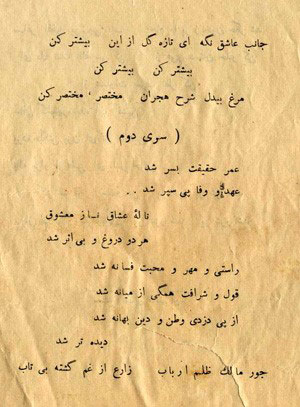 جانب عاشق نگه ای تازه گل از این بیشتر کن
بیشتر کن بیشتر کن
مرغ بیدل شرح هجران مختصر ، مختصر کن
( سری دوم )
عمر حقیقت بسر شد
عهد و وفا پی سپر شد . .
نالهٔ عشاق نساز معشوق
هر دو دروغ و بی اثر شد
راستی و مهر و محبت فسانه شد
قول و شرافت همگی از میانه شد
از پی دزدی وطن و دین بهانه شد
دیده تر شد
جور مالک ظلم ارباب زارع از غم گشته بی تاب